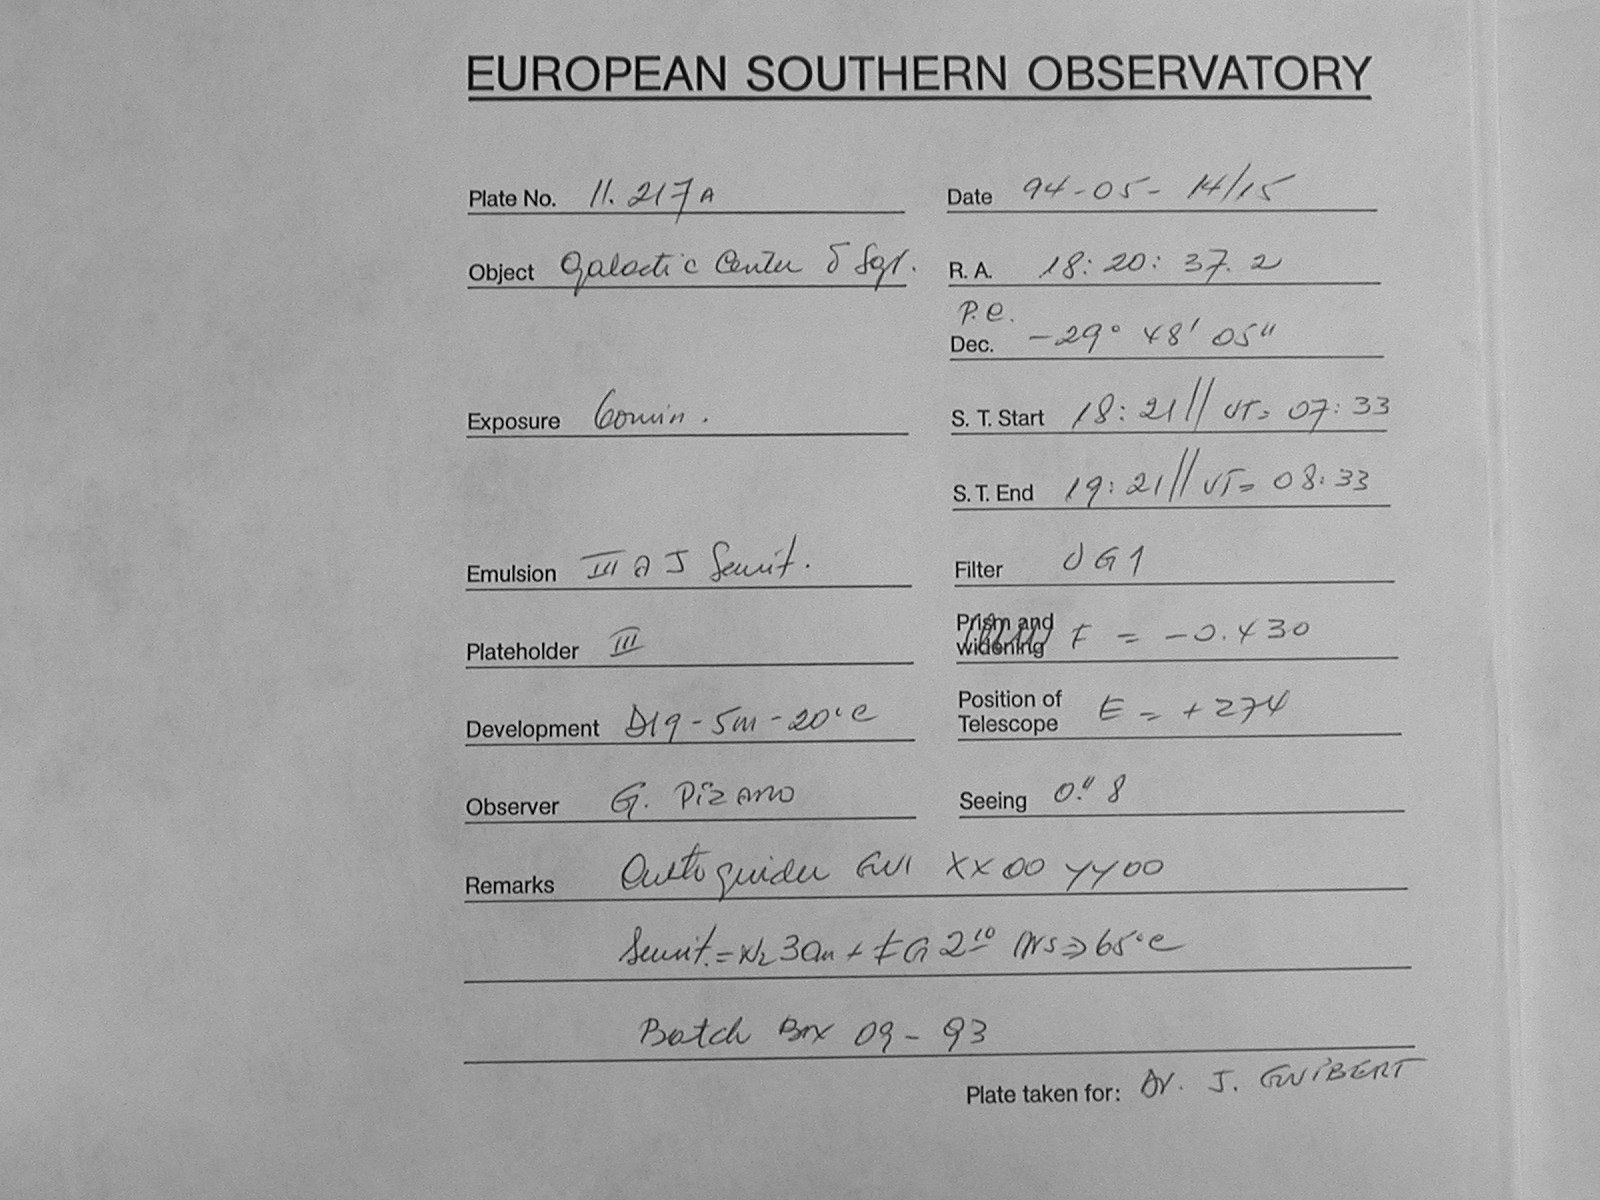 EUROPEAN SOUTHERN OBSERVATORY
Plate No. 11.217A
Date 94-05-14/15
Object Galactic Center δ Sgr.
R. A. 18:20:37.2
P.e.
Dec. -29° 48' 05"
Exposure 60min.
S. T. Start 18:21// UT= 07:33
S. T. End 19:21// UT= 08:33
Emulsion III a J Sensit.
Filter UG1
Prism and widening F = -0.430
Plateholder III
Position of Telescope E = +274
Development D19-5m-20°C
Observer G. Pizarro
Seeing 0."8
Remarks Autoguider GW1 XX00 YY00
Sensit.=N2 30m + FG 2¹⁰ hrs ⇒ 65°C
Batch Box 09-93
Plate taken for: Dr. J. GUIBERT